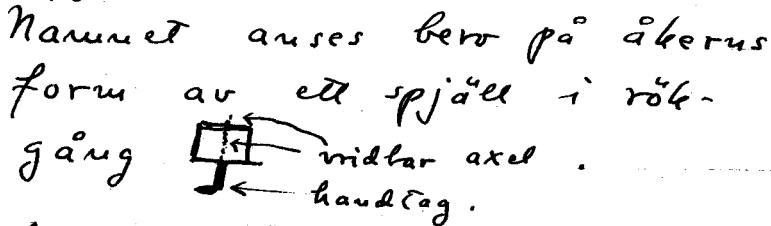 Namnet anses bero på åkerns
form av ett spjäll i rök-
gång vridbar axel.
handtag.